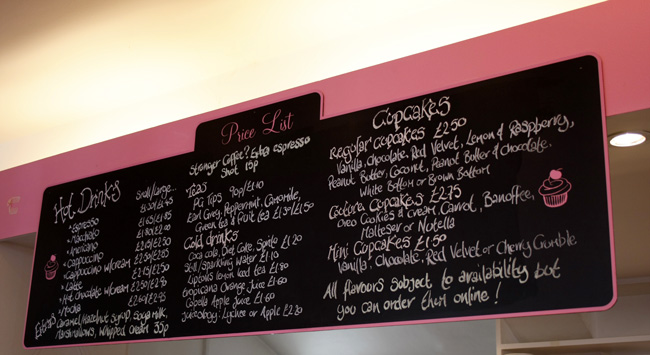 Price List
Hot Drinks
Small/Large...
Espresso
Macchiato
Americano
Cappuccino
Cappuccino w/cream
Latte
Hot chocolate w/cream
Mocha
Extras: Caramel/Hazelnut syrup, Soya milk,
Marshmallows, Whipped cream 35p
Stronger Coffee? Extra espresso
Shot 15p
Teas
PG Tips 90p/£1.10
Earl Grey, Peppermint, Camomile,
Green tea & fruit tea £1.30/£1.50
Cold drinks
Coca cola, Diet Coke, Sprite £1.20
Still/Sparkling water £1.10
Liptons lemon iced tea £1.80
Tropicana Orange Juice £1.60
Copella Apple Juice £1.60
Juiceology: Lychee or Apple £2.20
Cupcakes
Regular cupcakes £2.50
Vanilla, Chocolate, Red Velvet, Lemon & Raspberry,
Peanut Butter, Coconut, Peanut Butter & chocolate.
White Bottom or Brown Bottom
Couture Cupcakes £2.75
Oreo Cookies & Cream, Carrot, Banoffee,
Malteser or Nutella
Mini Cupcakes £1.50
Vanilla, Chocolate, Red Velvet or Cherry Crumble
All flavours subject to availability but
you can order them online!